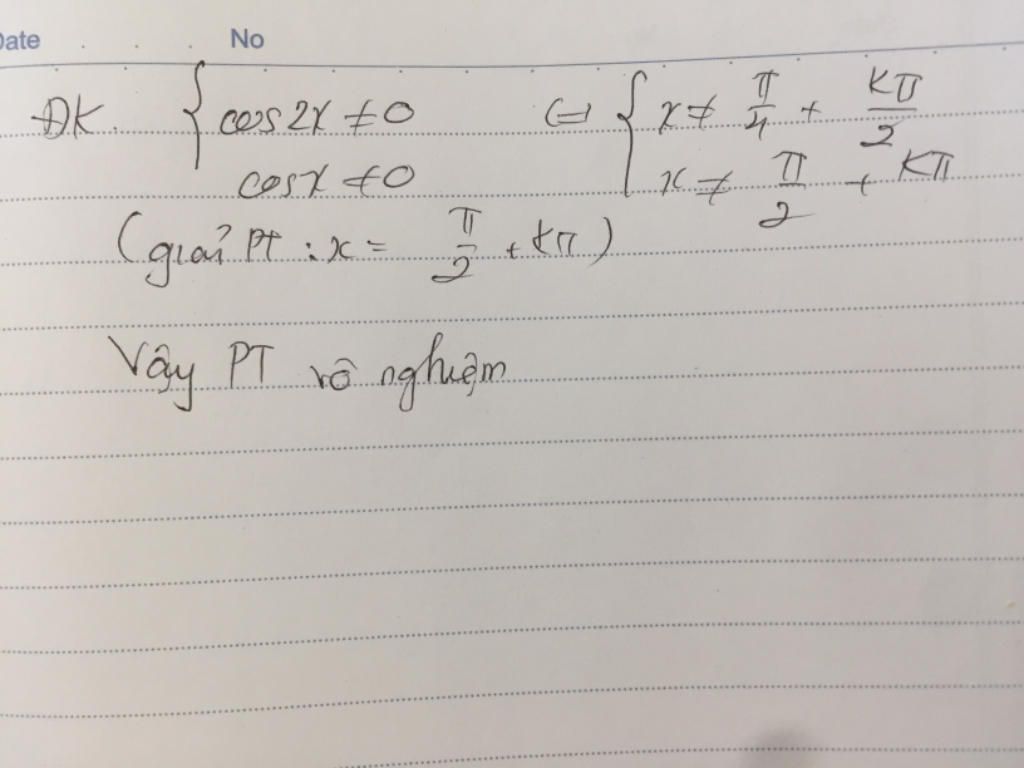 Date No
ĐK. { cos2x ≠ 0 (=) { x ≠ π/4 + Kπ/2
cosx ≠ 0 x ≠ π/2 + Kπ
(giải PT : x = π/2 + Kπ)
Vậy PT vô nghiệm